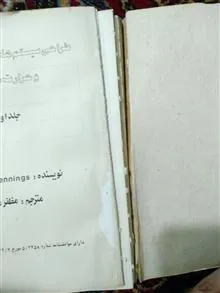 طراحی سیستم‌های
و حرارت
جلد او
نویسنده : ennings
مترجم : مظفر
دارای موافقتنامه شماره